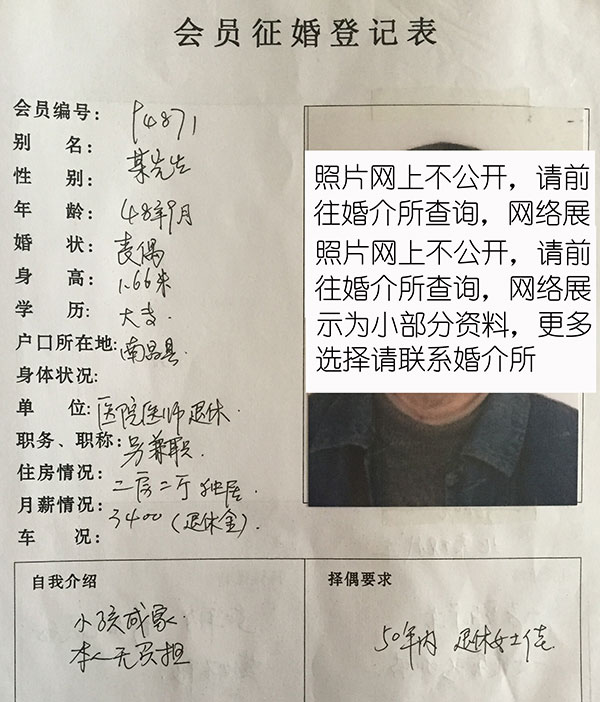 会员征婚登记表
会员编号: 94871
别名: 某先生
性别:
年龄: 48年9月
婚状: 丧偶
身高: 1.66米
学历: 大专.
户口所在地: 南昌县.
身体状况:
单位: 医院医师退休
职务、职称: 另兼职.
住房情况: 二房二厅 独居.
月薪情况: 3400 (退休金).
车况:
照片网上不公开，请前
往婚介所查询，网络展
照片网上不公开，请前
往婚介所查询，网络展
示为小部分资料，更多
选择请联系婚介所
自我介绍
小孩成家
本人无负担
择偶要求
50年内 退休女士佳.